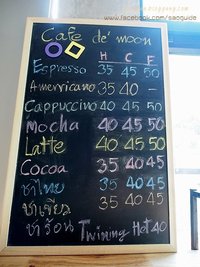 www.facebook.com/saoguide
Cafe de' moon
H C F
Espresso 35 45 50
Americano 35 40 -
Cappuccino 40 45 50
Mocha 40 45 50
Latte 40 45 50
Cocoa 35 40 45
ชาไทย 35 40 45
ชาเขียว 35 40 45
ชาร้อน Twining Hot 40